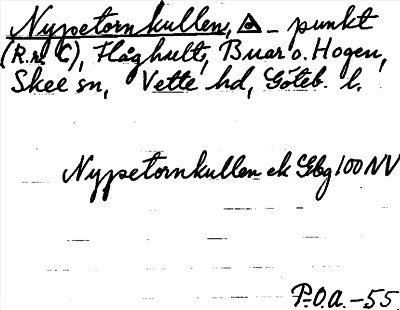 Nypetornkullen, △ - punkt
(R.r. C), Håghult, Buar o. Hogen,
Skee sn, Vette hd, Göteb. l.
Nypetornkullen ek Gbg 100 NV
P.O.A. -55